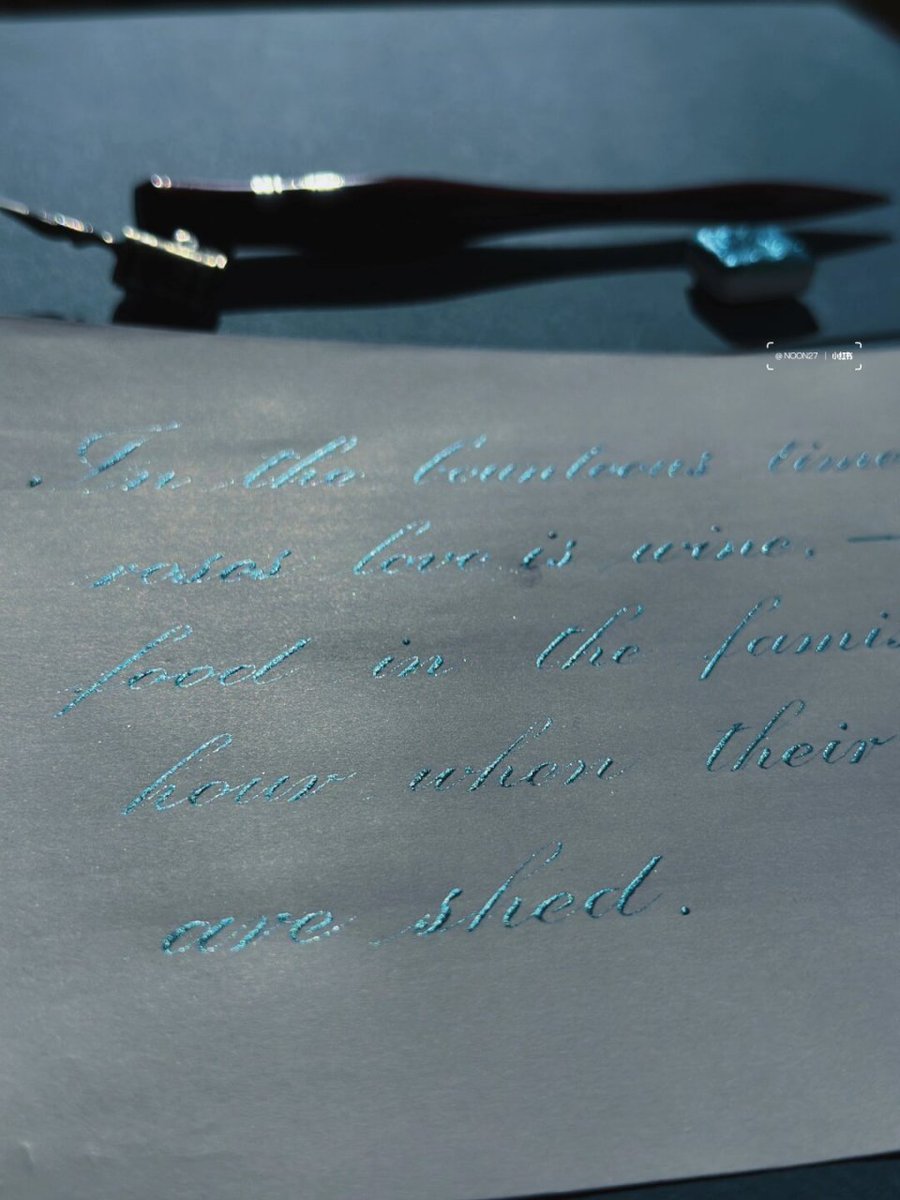 @ NOON27 | 小红书
. In the bounteous time
roses love is wine. —
food in the famis
hour when their
are shed.